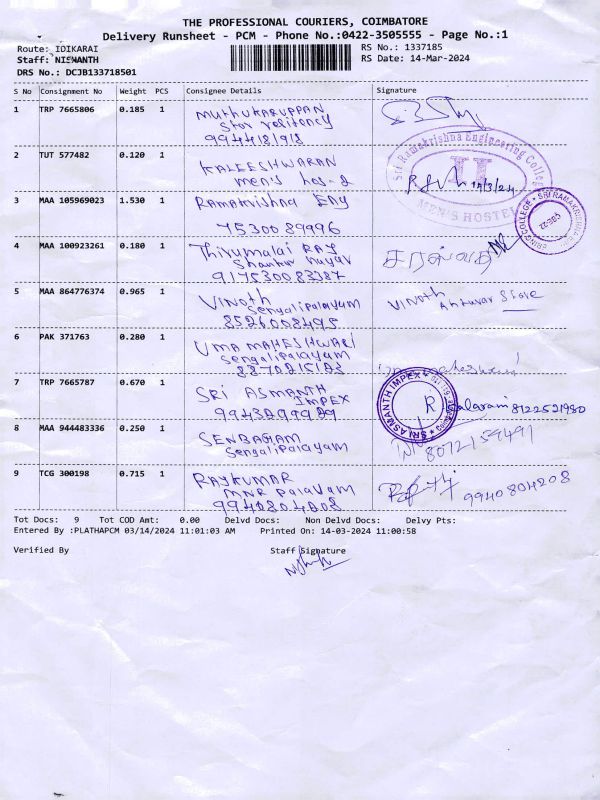 THE PROFESSIONAL COURIERS, COIMBATORE
Delivery Runsheet - PCM - Phone No.:0422-3505555 - Page No.:1
Route: IDIKARAI
RS No.: 1337185
Staff: NISHANTH
RS Date: 14-Mar-2024
DRS No.: DCJB133718501
S No Consignment No Weight PCS Consignee Details Signature
1 TRP 7665806 0.185 1 Muthukaruppan
Star
2 TUT 577482 0.120 1 KALEESHWARAN
men's hos-2
Sri Ramakrishna Engineering College
II
MEN'S HOSTEL
14/3/24
3 MAA 105969023 1.530 1 Ramakrishna Eng
7530089996
4 MAA 100923261 0.180 1 Thirumalai Raj
Shankar nagar
917530083387
சரஸ்வதி
5 MAA 864776374 0.965 1 Vinoth
Sengalipalayam
8526008495
Vinoth
Store
6 PAK 371763 0.280 1 UMA MAHESHWARI
Sengalipalayam
7 TRP 7665787 0.670 1 SRI ASMANTH
IMPEX
9943899989
SRI ASMANTH IMPEX
8122521980
8 MAA 944483336 0.250 1 SENBAGAM
Sengalipalayam
8072159491
9 TCG 300198 0.715 1 RAJKUMAR
MNR Palayam
9940804208
9940804208
Tot Docs: 9 Tot COD Amt: 0.00 Delvd Docs: Non Delvd Docs: Delvy Pts:
Entered By :PLATHAPCM 03/14/2024 11:01:03 AM Printed On: 14-03-2024 11:00:58
Verified By Staff Signature